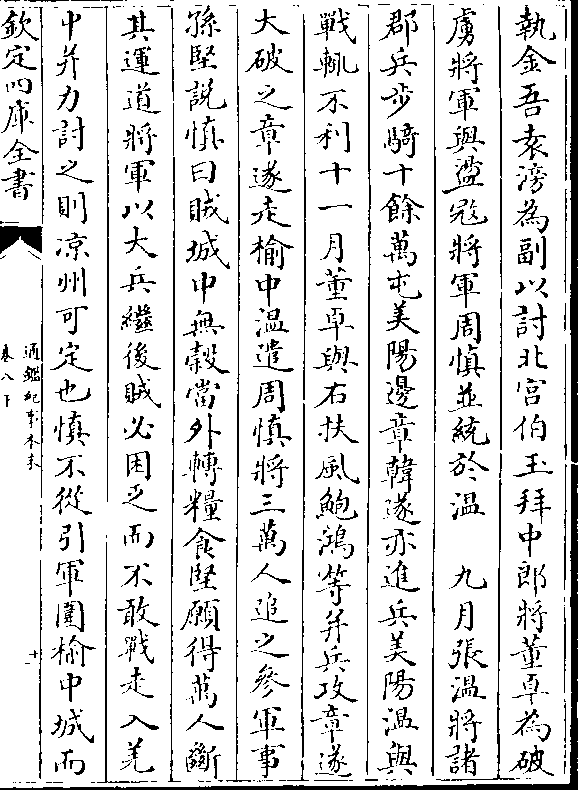 執金吾袁滂為副以討北宮伯玉拜中郎將董卓為破
虜將軍與盪冦將軍周慎並統於温　九月張温將諸
郡兵步騎十餘萬屯美陽邊章韓遂亦進兵美陽温與
戰輒不利十一月董卓與右扶風鮑鴻等并兵攻章遂
大破之章遂走榆中温遣周慎將三萬人追之參軍事
孫堅説慎曰賊城中無糓當外轉糧食堅願得萬人斷
其運道將軍以大兵繼後賊必困乏而不敢戰走入羌
中并力討之則凉州可定也慎不從引軍圍榆中城而
欽定四庫全書
通鑑紀事本末
卷八下
十